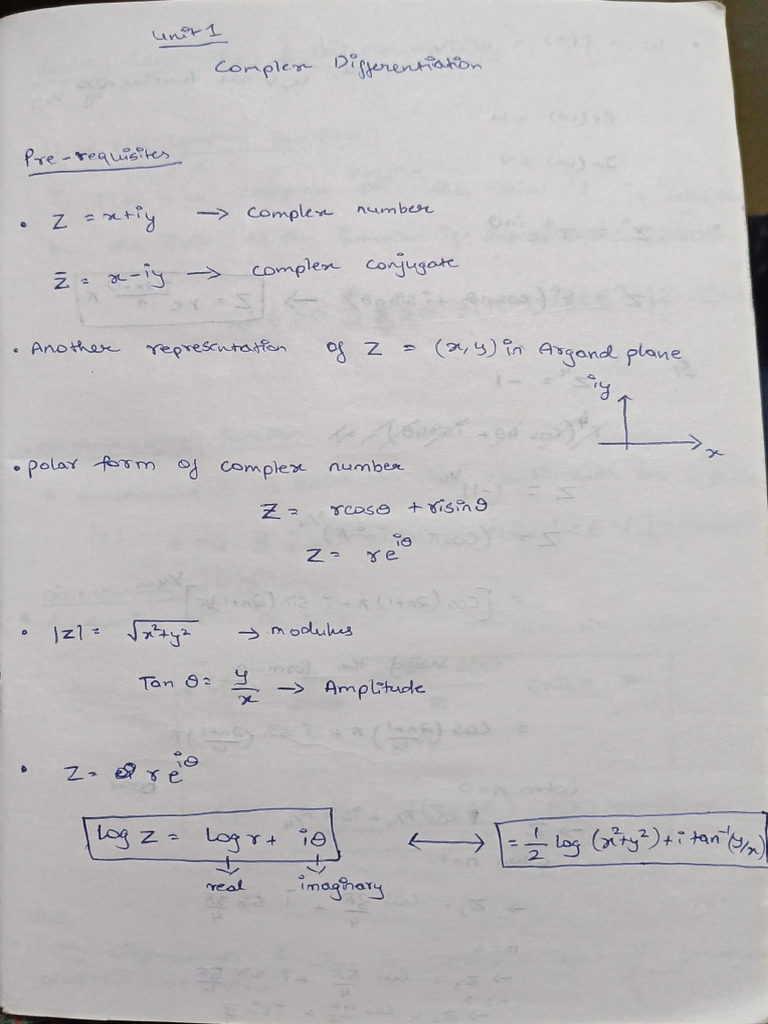 Unit 1
Complex Differentiation
Pre-requisites
• Z = x+iy → complex number
z̄ = x-iy → complex conjugate
• Another represntation of Z = (x, y) in Argand plane
iy
x
• polar form of complex number
Z = rcosθ + risinθ
Z = re^{iθ}
• |z| = √x²+y² → modulus
Tan θ = y/x → Amplitude
• Z = re^{iθ}
Log Z = Log r + iθ ⟷ = 1/2 log (x²+y²) + i tan⁻¹(y/x)
real imaginary